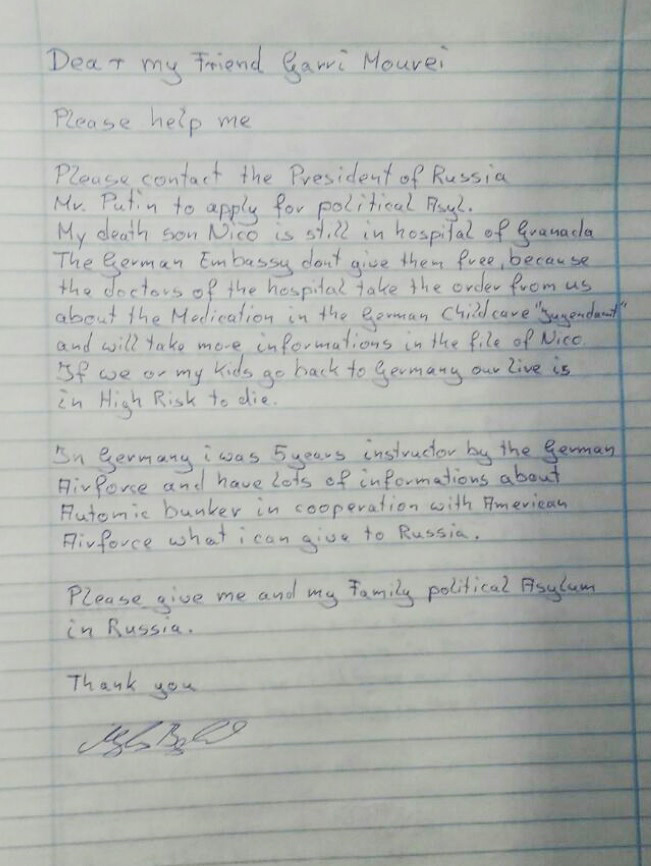 Dear my Friend Garri Mourei
Please help me
Please contact the President of Russia
Mr. Putin to apply for political Asyl.
My death son Nico is still in hospital of Granada
The German Embassy dont give them free, because
the doctors of the hospital take the order from us
about the Medication in the German Childcare "Jugendamt"
and will take more informations in the file of Nico.
If we or my kids go back to Germany our live is
in High Risk to die.
In Germany i was 5 years instructor by the German
Airforce and have lots of informations about
Automic bunker in cooperation with American
Airforce what i can give to Russia.
Please give me and my Family political Asylum
in Russia.
Thank you